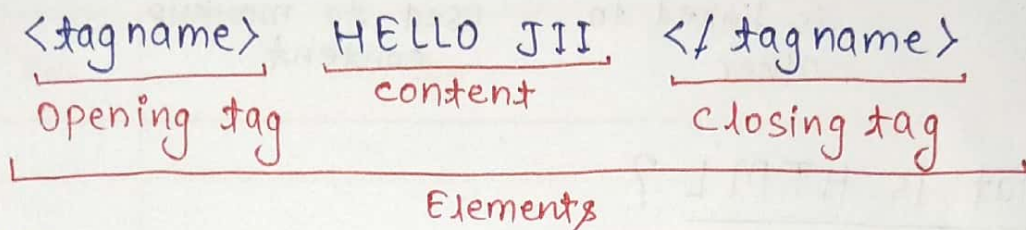 <tagname> HELLO JII </tagname>
opening tag content closing tag
Elements